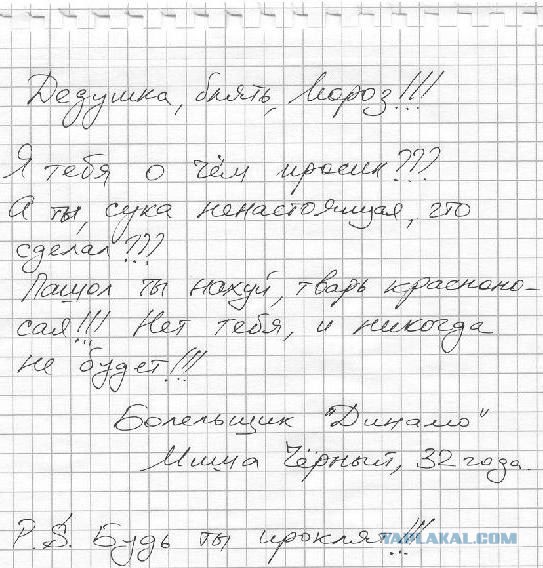 Дедушка, блять, Мороз!!!
Я тебя о чём просил???
А ты, сука ненастоящая, что
сделал???
Пашол ты нахуй, тварь красноно-
сая!!! Нет тебя, и никогда
не будет!!!
Болельщик "Динамо"
Миша Чёрный, 32 года.
P.S. Будь ты проклят!!!
YAPLAKAL.COM